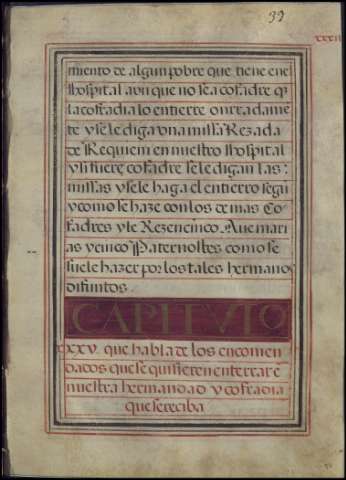 39
xxxii
miento de algun pobre que tiene ene
l hospital aun que no sea cofadre q̃
la cofadia lo entierre onrradame
te y se le diga vna missa Rezada
de Requiem en nuestro hospital
y si fuere cofadre se le digan las
missas y se le haga el entierro segũ
y como se haze con los de mas co
fadres y le Rezen cinco Aue mari
as y cinco Paternostes como se
suele hazer por los tales hermanos
difuntos.
CAPITVTO
xxxv. que habla de los encomen
dados que se quisieren enterrar e
nuestra hermandad y cofradia
que se reciba